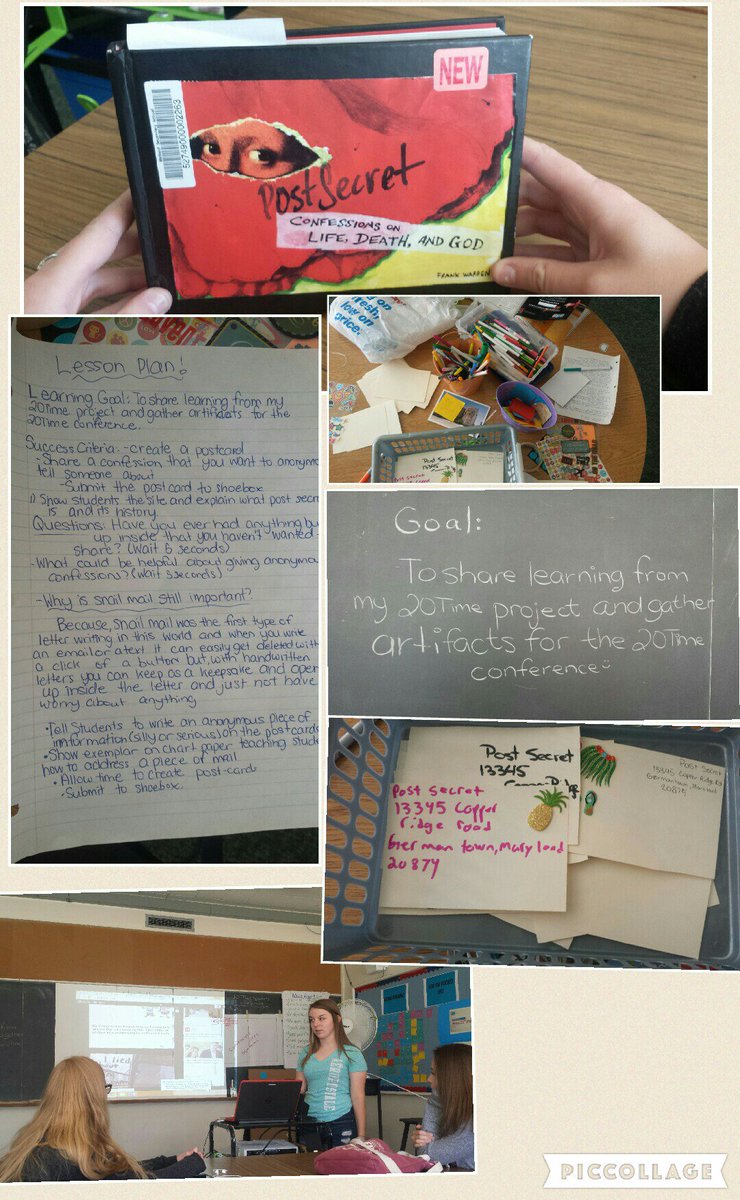 NEW
52749000002263
PostSecret
CONFESSIONS ON
LIFE, DEATH, AND GOD
FRANK WARREN
Lesson Plan!
Learning Goal: To share learning from my
20Time project and gather artifacts for the
20Time conference.
Success Criteria: -create a postcard
-Share a confession that you want to anonymo
tell someone about
-Submit the postcard to shoebox
1) Show students the site and explain what post secr
is and its history.
Questions: Have you ever had anything bu
up inside that you haven't wanted
share? (Wait 6 seconds)
-What could be helpful about giving anonymo
confessions? (wait 3 seconds)
-Why is snail mail still important?
Because, snail mail was the first type of
letter writing in this world and when you write
an email or a text it can easily get deleted with
a click of a button but, with handwritten
letters you can keep as a keepsake and open
up inside the letter and just not have
worry about anything
• Tell Students to write an anonymous piece of
information (silly or serious) on the postcards
• Show exemplar on chart paper teaching stude
how to address a piece of mail
• Allow time to create post-cards
• Submit to shoebox.
fresh,
low on
price.
Post Secret
13345
Goal:
To share learning from
my 20Time project and gather
artifacts for the 20Time
conference
Post Secret
13345
Post Secret
13345 Copper
ridge road
German town, Mary land
20874
Post Secret
13345 Copper Ridge Rd
Germantown, Maryland
20874
I lied
PIC·COLLAGE